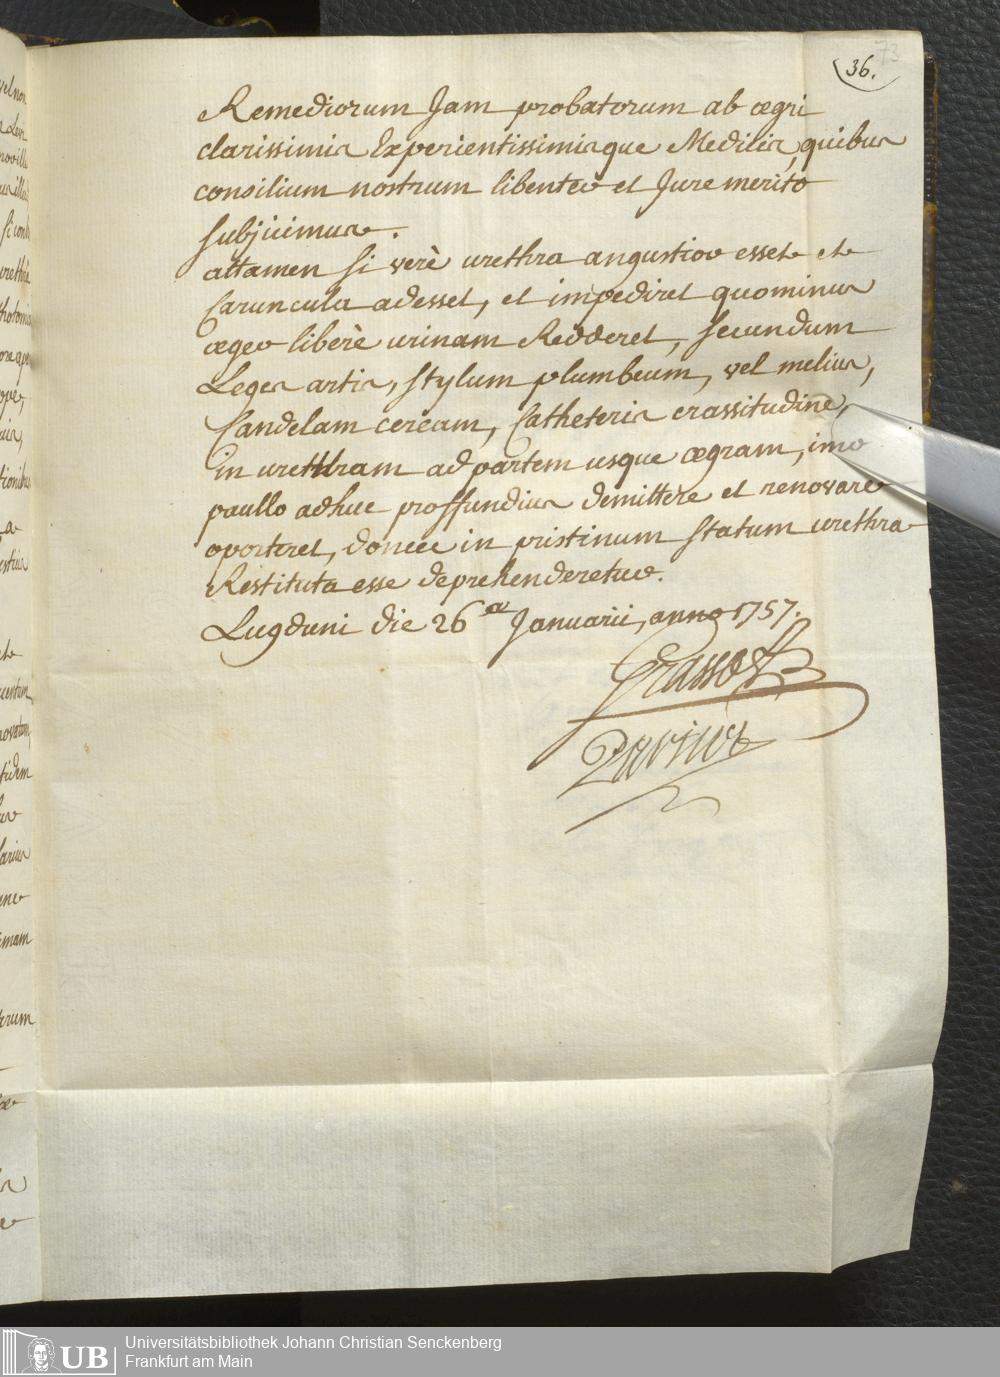 36.
73
Remediorum Jam probatorum ab ægri
clarissimis Experientissimisque Medicis, quibus
consilium nostrum libenter et Jure merito
subjicimus.
attamen si verè urethra angustior esset et
Caruncula adesset, et impediret quominus
æger liberè urinam Redderet, secundum
Leges artis, stylum plumbeum, vel melius,
Candelam ceream, Catheteris crassitudine,
in urethram ad partem usque ægram, imo
paullo adhuc proffundius demittere et renovare
oporteret, donec in pristinum statum urethra
Restituta esse deprehenderetur.
Lugduni die 26a Januarii, anno 1757.
Grassot
UB
Universitätsbibliothek Johann Christian Senckenberg
Frankfurt am Main